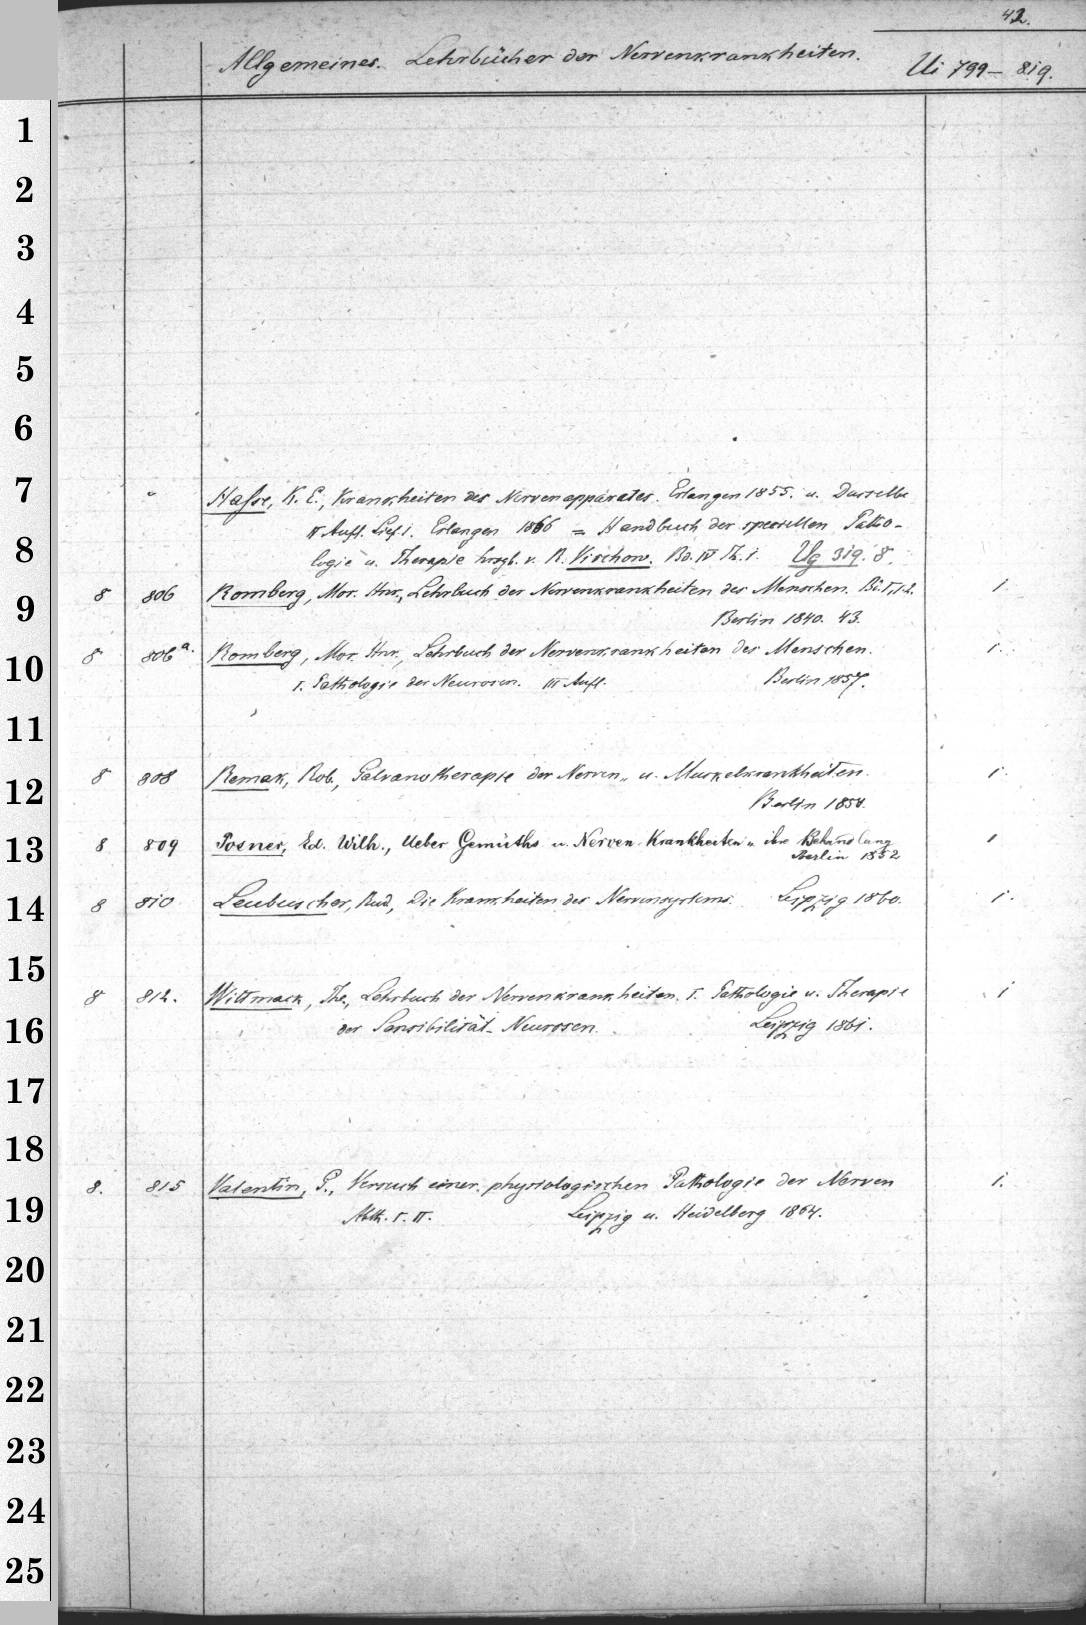 42.
Allgemeines. Lehrbücher der Nervenkrankheiten. Ui 799– 819.
1
2
3
4
5
6
7 " Hasse, K. E., Krankheiten des Nervenapparates. Erlangen 1855. u. Dasselbe
II Aufl. Lief. 1. Erlangen 1866 = Handbuch der speciellen Patho-
8 logie u. Therapie hrsgb. v. R. Virchow. Bd. IV Th. 1. Ug 319. 8.
9 8 806 Romberg, Mor. Hnr., Lehrbuch der Nervenkrankheiten des Menschen. Bd. I, 1-2. 1
Berlin 1840. 43.
10 8 806a. Romberg, Mor. Hnr., Lehrbuch der Nervenkrankheiten des Menschen. 1.
I. Pathologie der Neurosen. III Aufl. Berlin 1857.
11
12 8 808 Remak, Rob., Galvanotherapie der Nerven- u. Muskelkrankheiten. 1.
Berlin 1858.
13 8 809 Posner, Ed. Wilh., Ueber Gemüths- u. Nerven-Krankheiten u. ihre Behandlung 1
Berlin 1852
14 8 810 Leubuscher, Rud., Die Krankheiten des Nervensystems. Leipzig 1860. 1.
15
8 812. Wittmack, Th., Lehrbuch der Nervenkrankheiten. I. Pathologie u. Therapie 1
16 der Sensibilität-Neurosen. Leipzig 1861.
17
18
19 8. 815 Valentin, G., Versuch einer physiologischen Pathologie der Nerven 1.
Abth. I. II. Leipzig u. Heidelberg 1864.
20
21
22
23
24
25